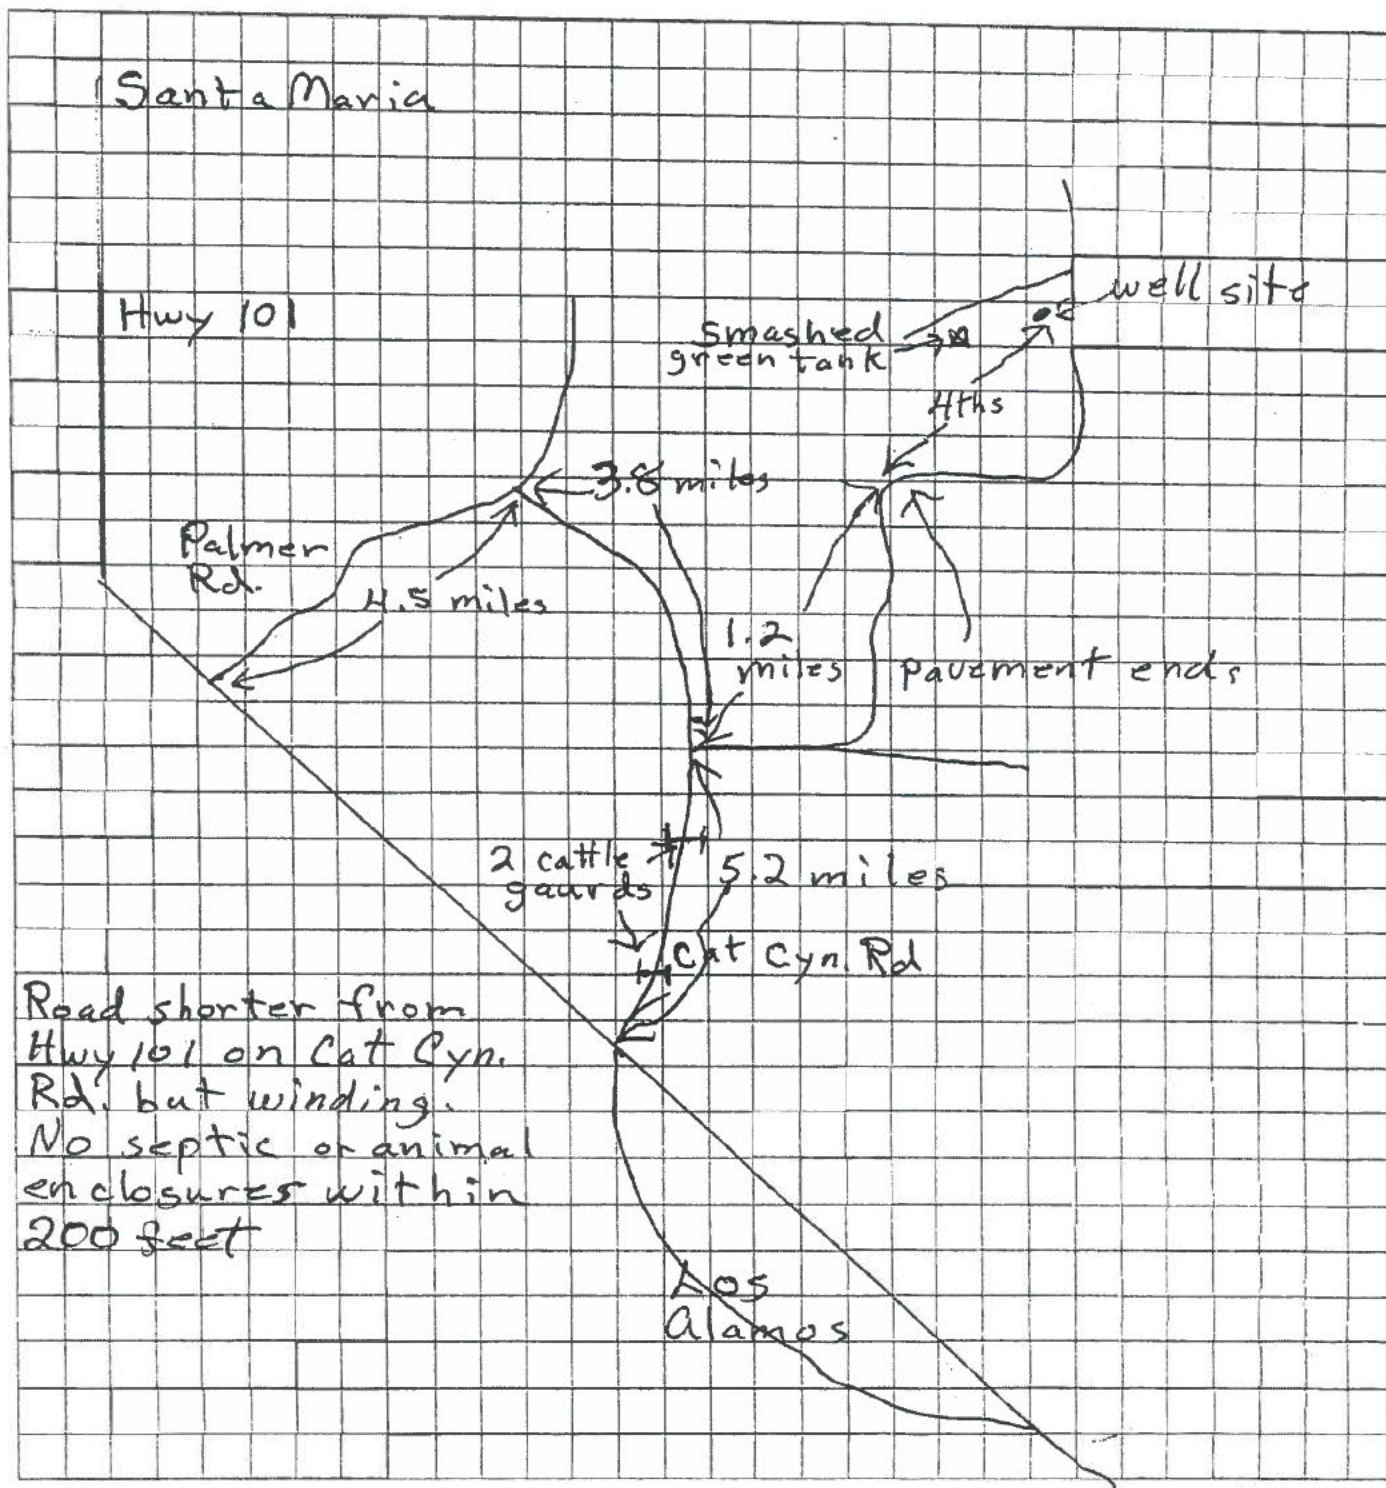 Santa Maria
Hwy 101
well site
smashed
green tank
4ths
3.8 miles
Palmer
Rd.
4.5 miles
1.2
miles
pavement ends
2 cattle
gaurds
5.2 miles
Cat Cyn. Rd
Road shorter from
Hwy 101 on Cat Cyn.
Rd. but winding.
No septic or animal
enclosures within
200 feet
Los
Alamos